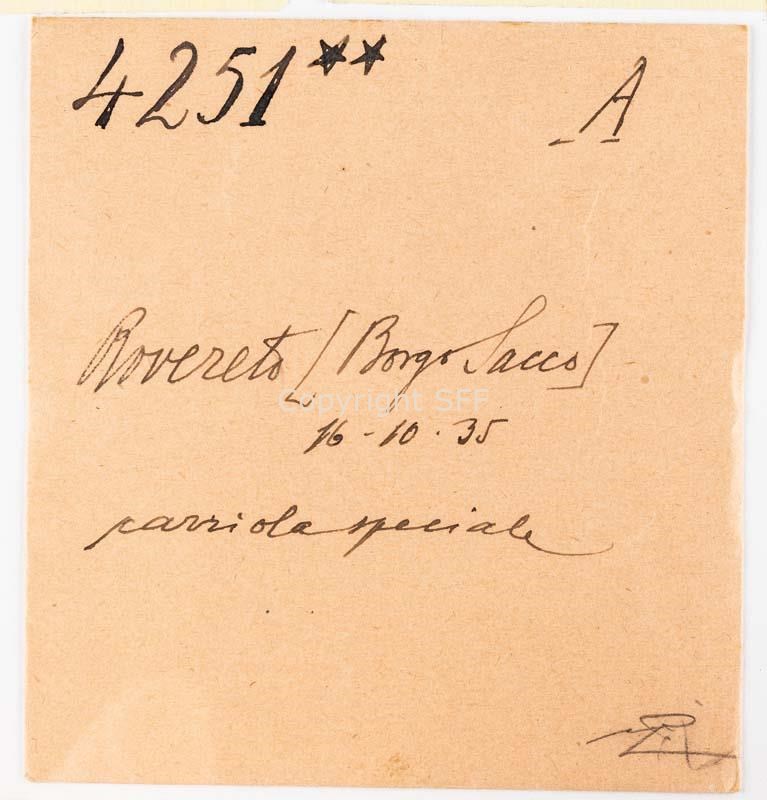 4251** A
Rovereto [Borgo Sacco]
Copyright SFF
16-10.35
carriola speciale